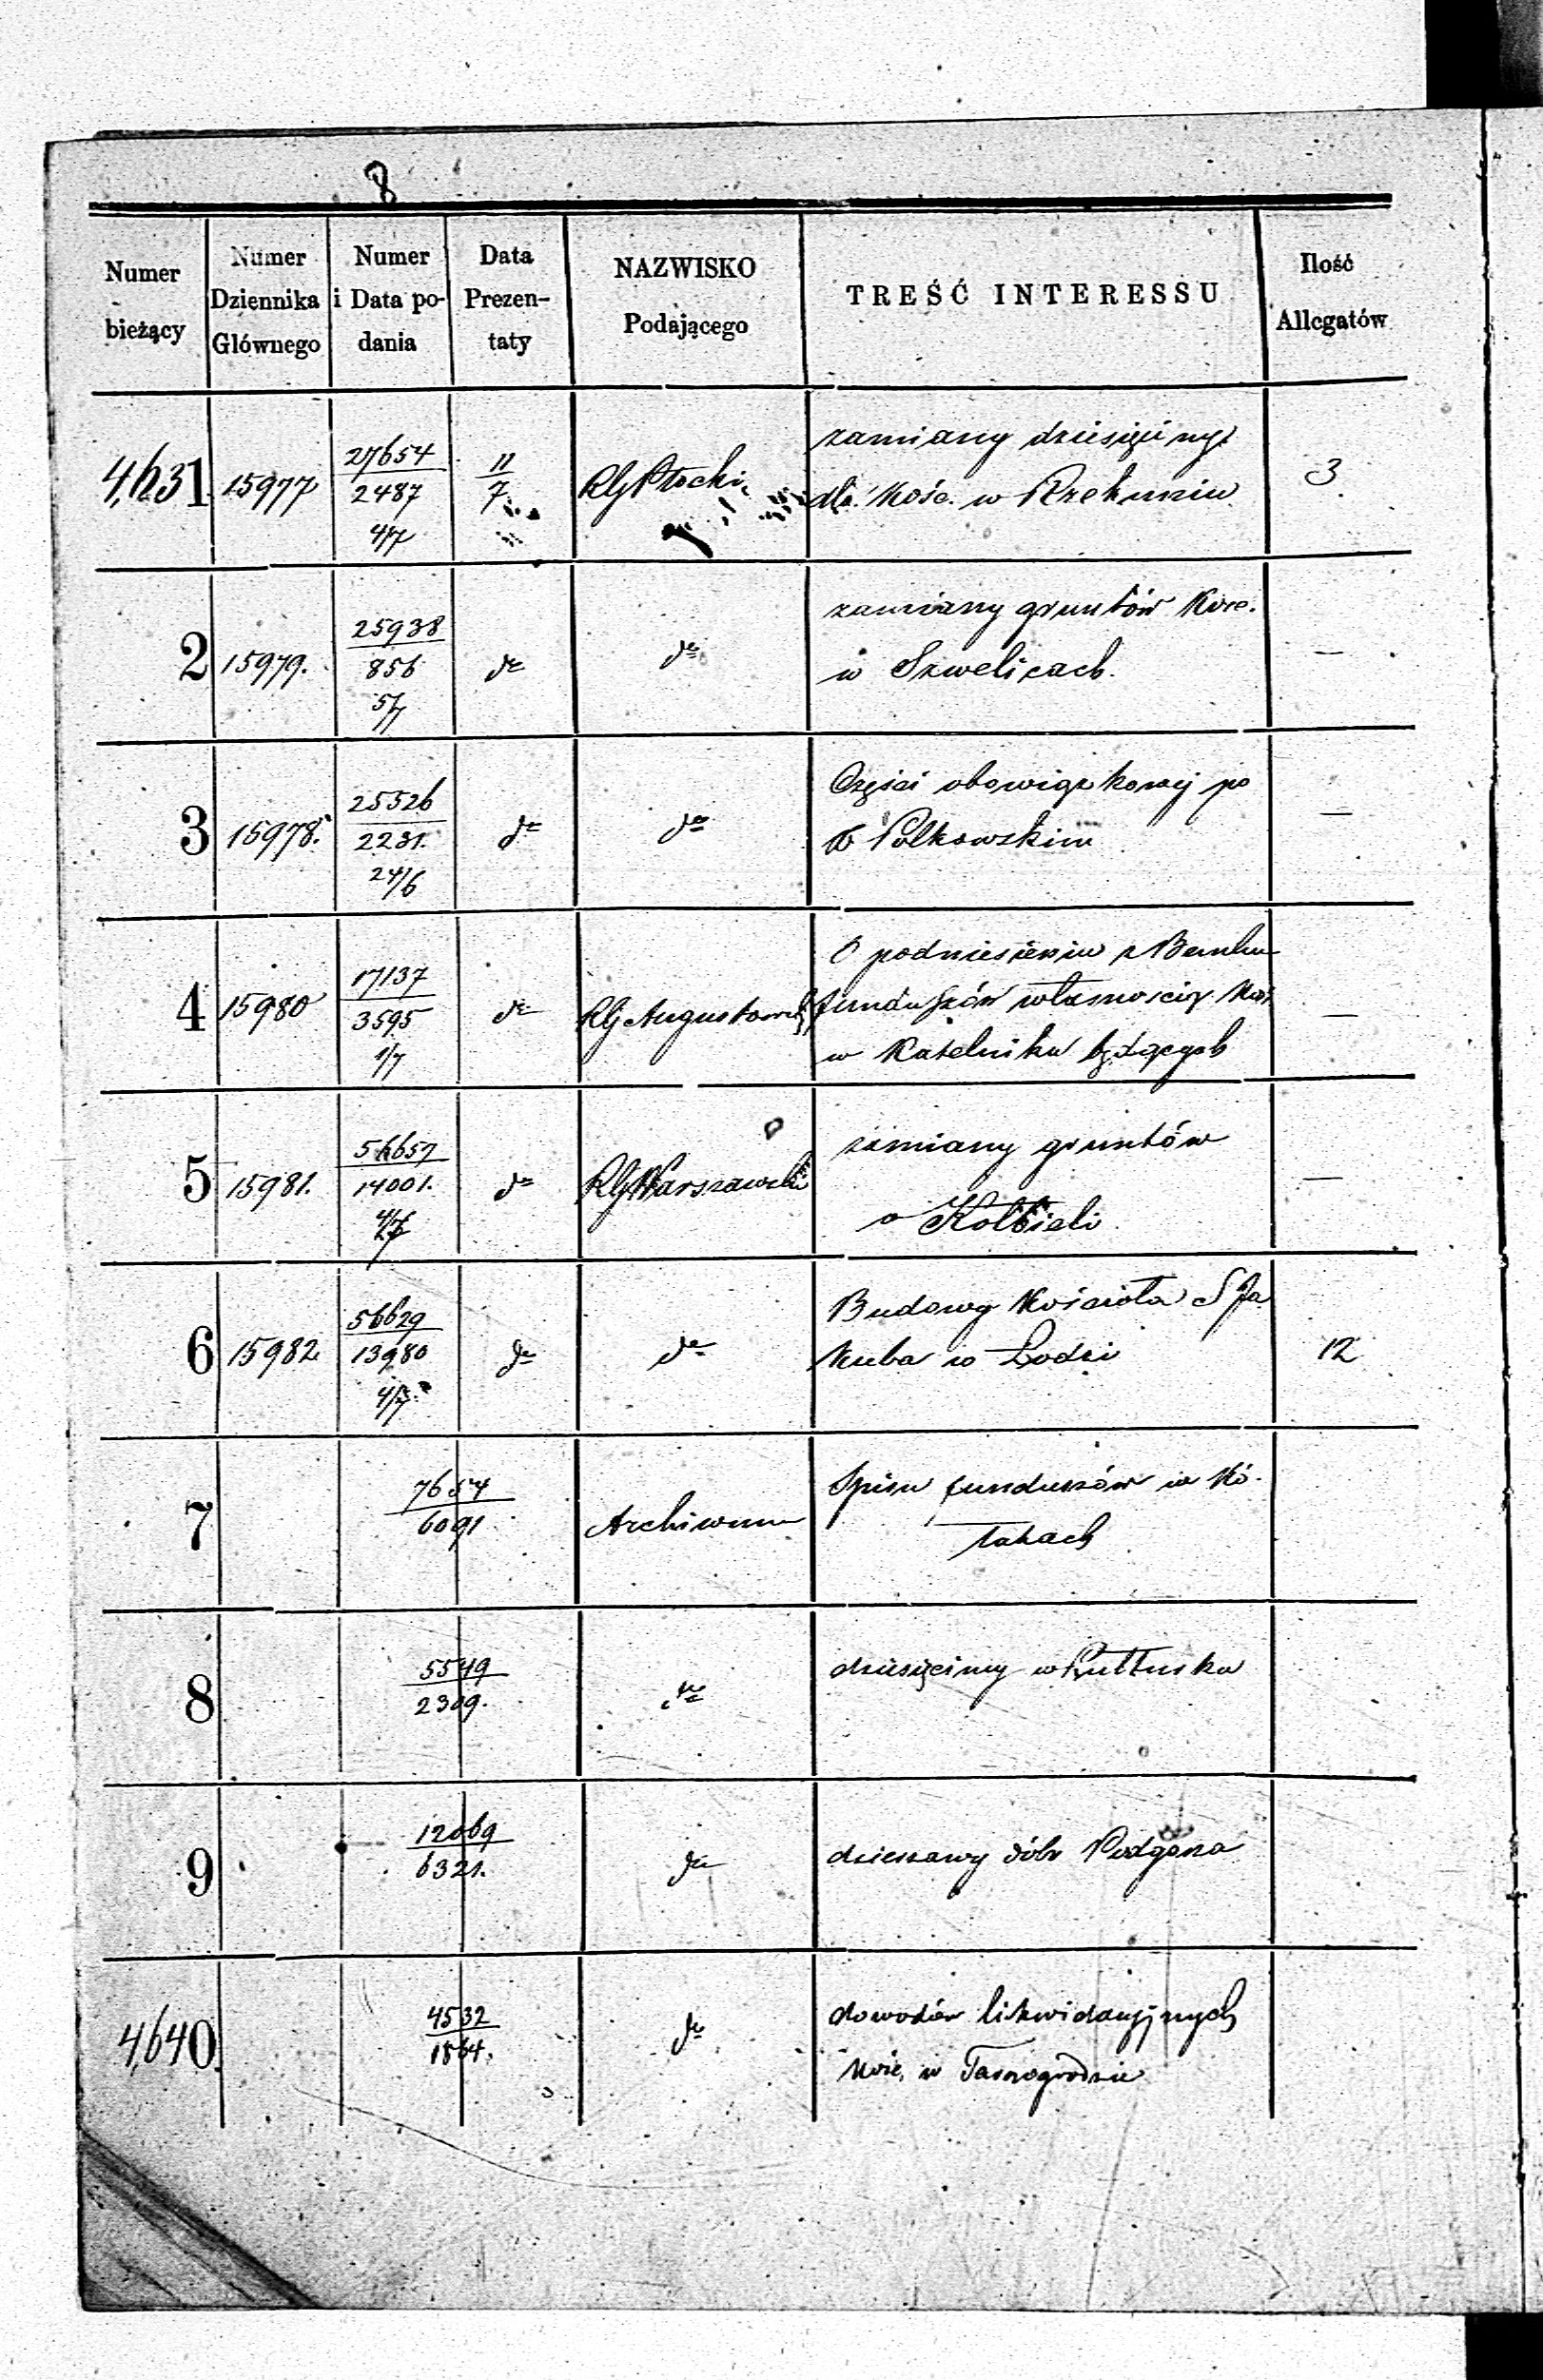 8
Numer bieżący | Numer Dziennika Głównego | Numer i Data podania | Data Prezentaty | NAZWISKO Podającego | TREŚĆ INTERESSU | Ilość Allegatów
4,631 | 15977 | 27654 / 2487 4/7 | 11/7 | RG Płocki | zamiany dziesięciny
dla Kośc. w Rzekuniu | 3
2 | 15979. | 25938 / 856 5/7 | do | do | zamiany gruntów Kośc.
w Szwelicach. | —
3 | 15978. | 25526 / 2231. 24/6 | do | do | Części obowiązkowej po
X Polkowskim | —
4 | 15980 | 17137 / 3595 1/7 | do | RG Augustowski | O podniesieniu z Banku
funduszów własnością Koś.
w Ratelniku będących | —
5 | 15981. | 56657 / 14001. 4/7 | do | RG Warszawski | zamiany gruntów
w Kołbieli | —
6 | 15982 | 56629 / 13980 4/7 | do | do | Budowy Kościoła S Ja
kuba w Łodzi | 12
7 | 7654 / 6091 | Archiwum | Spisu funduszów w Kó-
takach
8 | 5549 / 2309. | do | dziesięciny w Pułtusku
9 | 12069 / 6321. | do | dzierżawy dóbr Podgóra
4,640 | 4532 / 1864. | do | dowodów likwidacyjnych
Kośc. w Tarnogrodzie